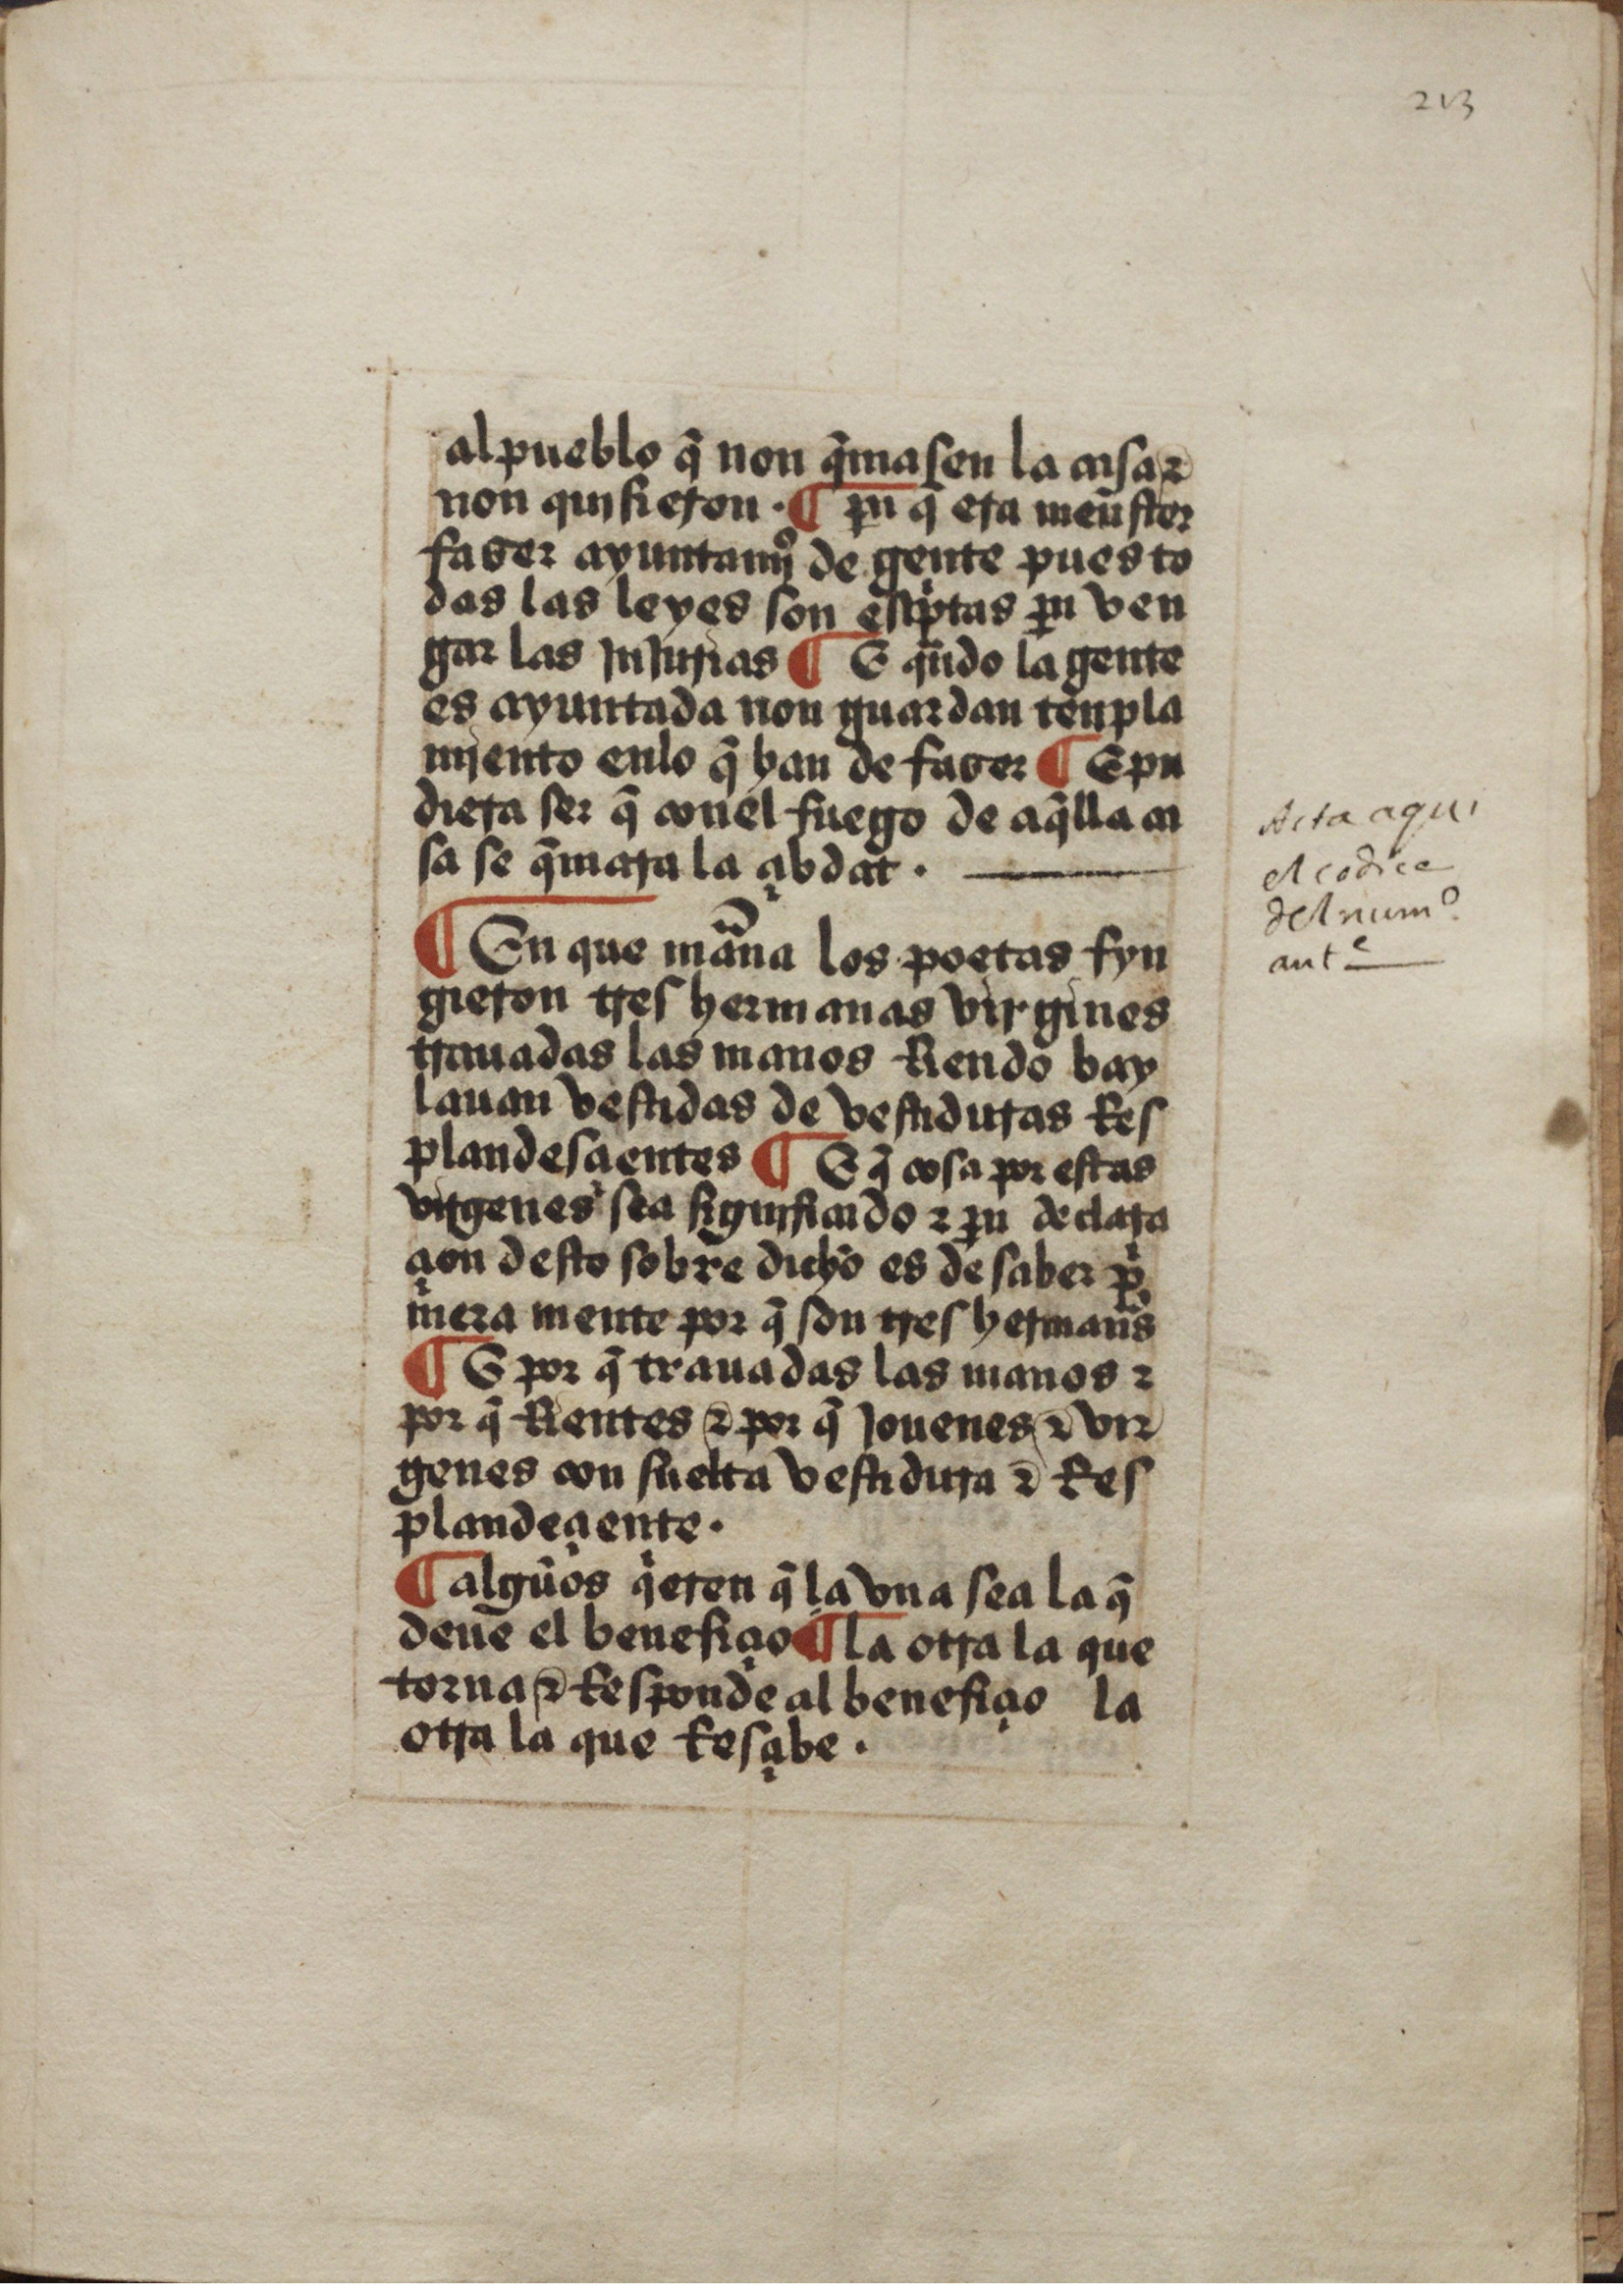 213
al pueblo q̃ non q̃masen la casa ⁊
non quisieron · ¶ pa q̃ era meñster
fazer ayuntamjº de gente pues to
das las leyes son escptas pa ven
gar las Injurias ¶ E qñdo la gente
es ayuntada non guardan tenpla
mjento enlo q̃ han de fazer ¶ E pu
diera ser q̃ conel fuego de aq̃lla ca
sa se q̃mara la çibdat ·
¶ En que mãna los poetas fyn
gieron tres hermanas virgines
trauadas las manos Riendo bay
lauan vestidas de vestiduras Res
plandesçientes ¶ E q̃ cosa por estas
virgenes sea significado ⁊ pa declara
çion desto sobre dicho es de saber p
mera mente por q̃ son tres hermañs
¶ E por q̃ trauadas las manos ⁊
por q̃ Rientes ⁊ por q̃ Jouenes ⁊ vir
genes con suelta vestidura ⁊ Res
plandeçiente ·
¶ algũos qieren q̃ la vna sea la q̃
deue el benefiçio ¶ la otra la que
torna ⁊ Responde al benefiçio la
otra la que Resçibe ·
Acta aqui
el codice
del numº
antᵉ